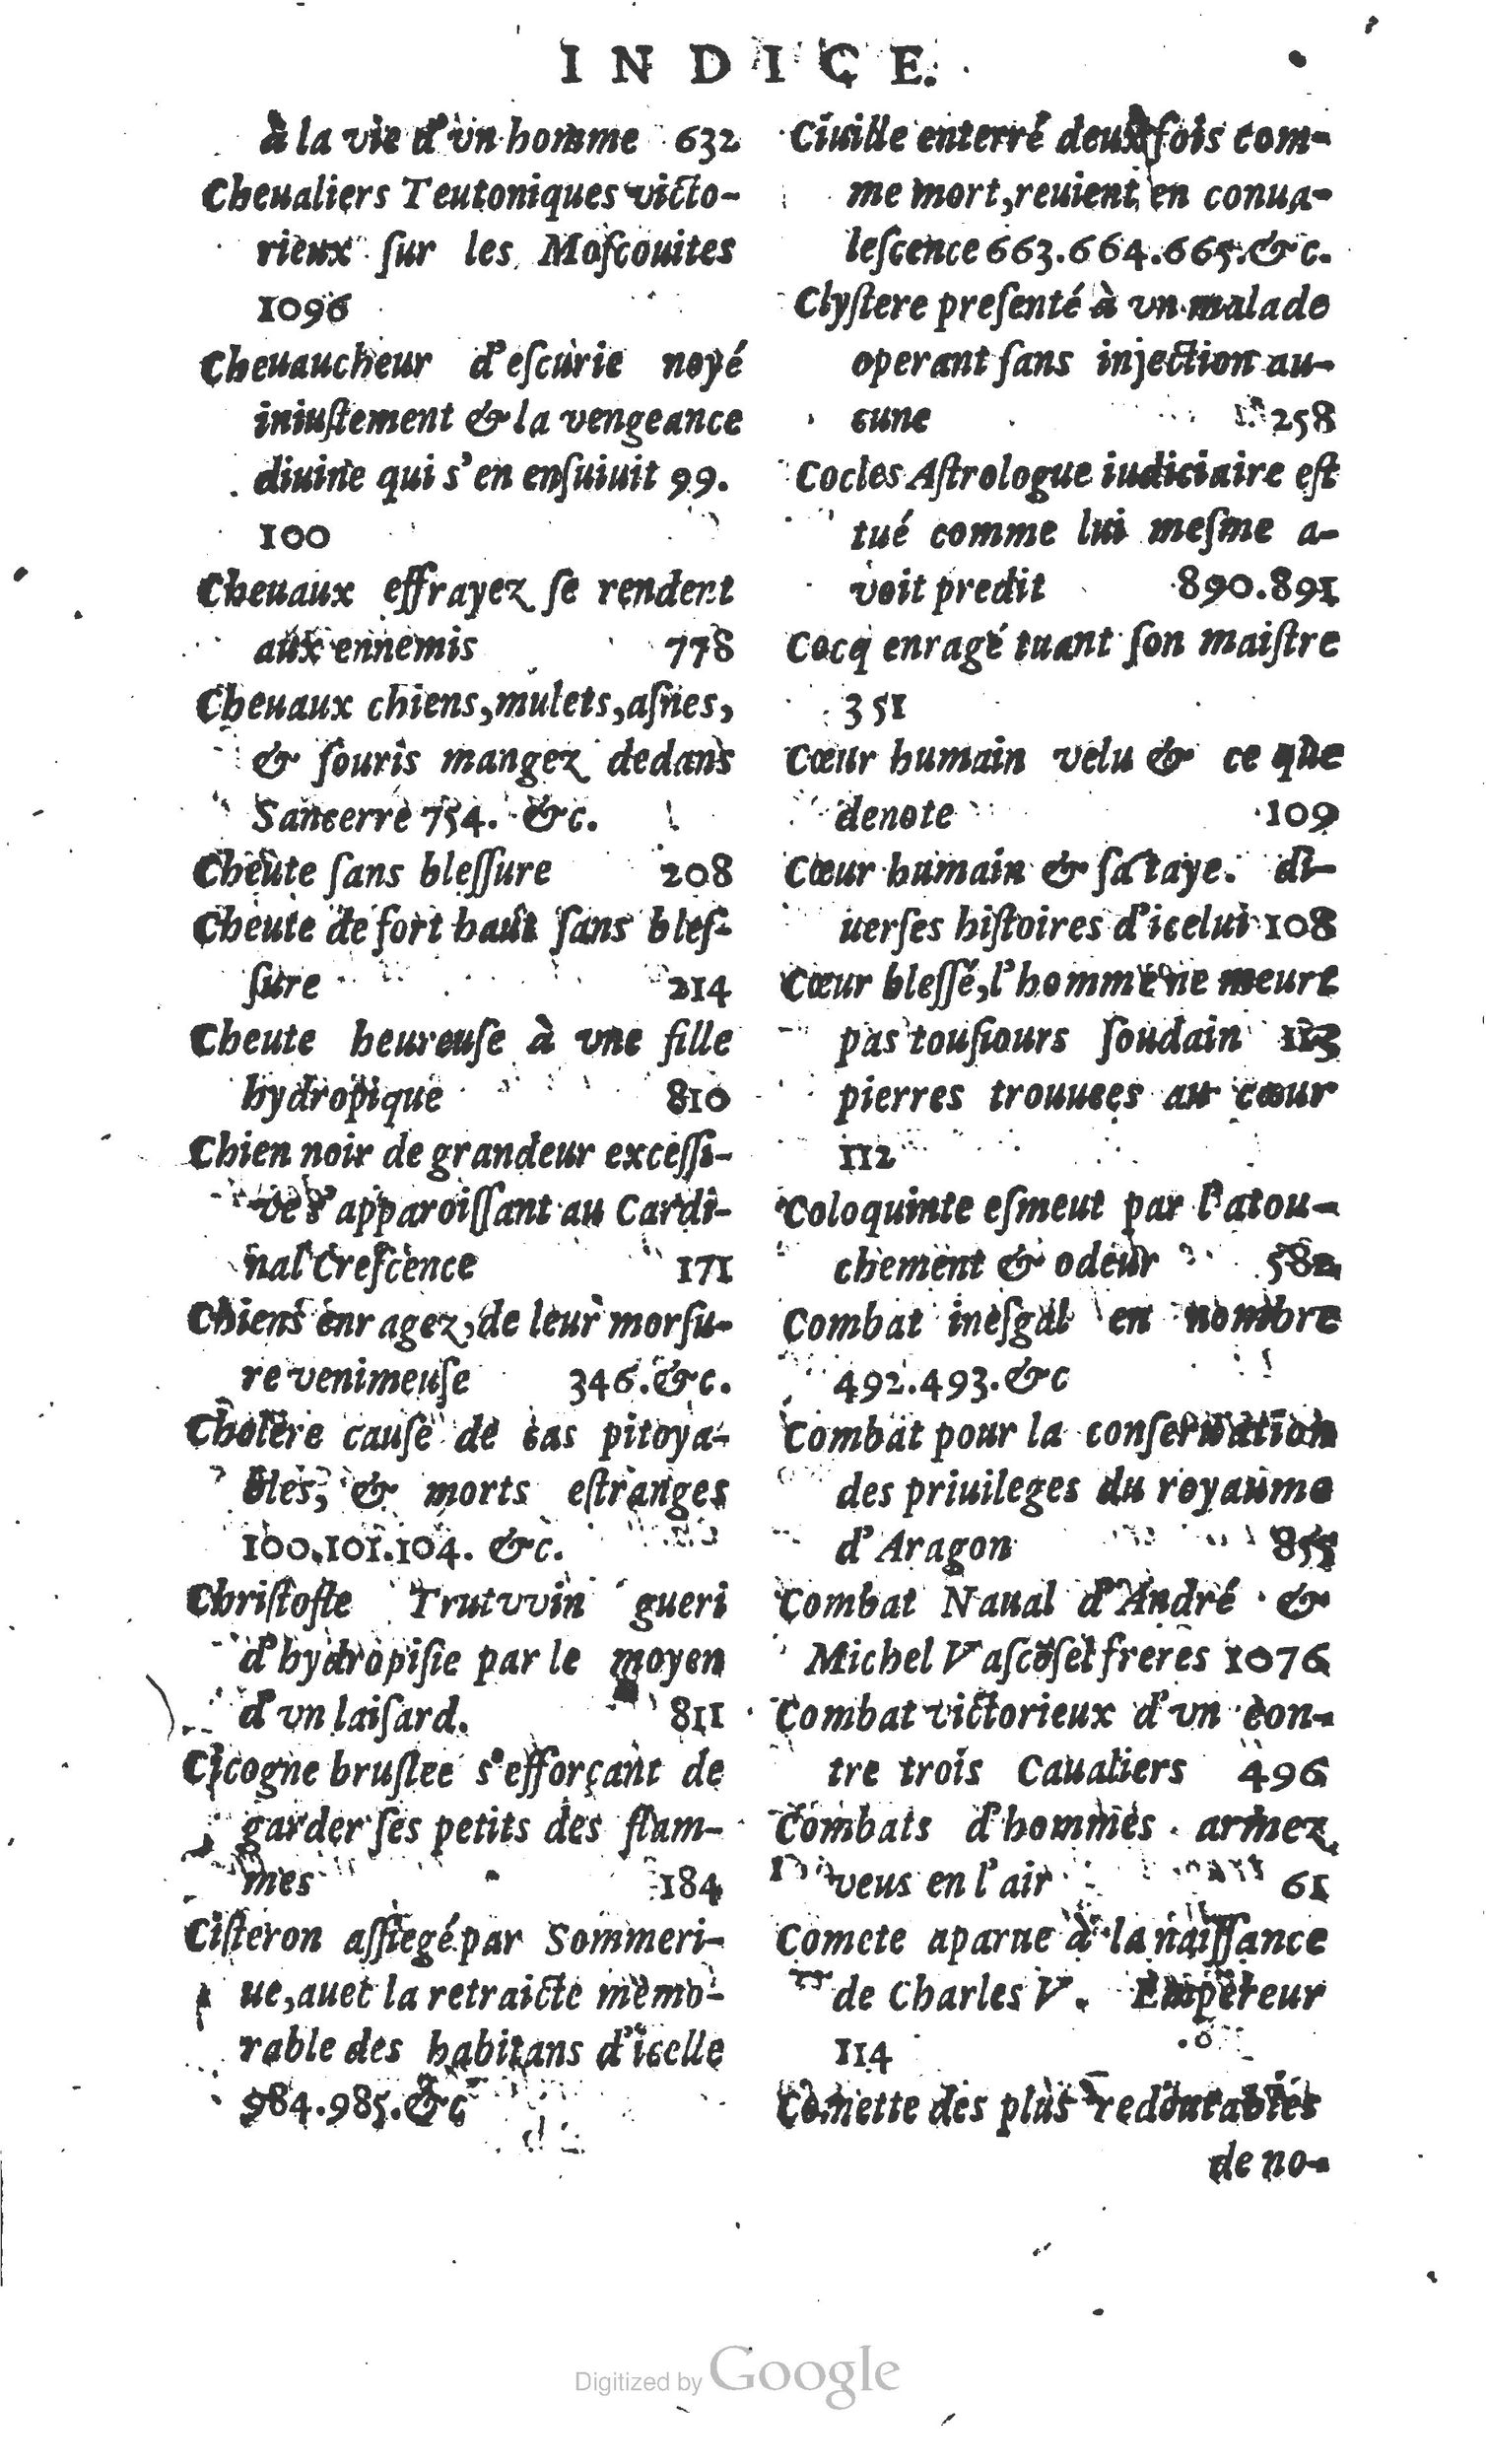 INDICE.
à la vie d'vn homme 632
Cheualiers Teutoniques victo-
rieux ſur les Moſcouites
1096
Cheuaucheur d'eſcurie noyé
iniuſtement & la vengeance
diuine qui s'en enſuiuit 99.
100
Cheuaux effrayez ſe rendent
aux ennemis 778
Cheuaux chiens, mulets, aſnes,
& ſouris mangez dedans
Sancerre 754. &c.
Cheute ſans bleſſure 208
Cheute de fort haut ſans bleſ-
ſure 214
Cheute heureuſe à vne fille
hydropique 810
Chien noir de grandeur exceſſi-
ue s'apparoiſſant au Cardi-
nal Creſcence 171
Chiens enragez, de leur morſu-
re venimeuſe 346. &c.
Cholere cauſe de cas pitoya-
bles, & morts eſtranges
100.101.104. &c.
Chriſtofle Trutvvin gueri
d'hydropiſie par le moyen
d'vn laiſard. 811
Cicogne bruſlee s'efforçant de
garder ſes petits des flam-
mes 184
Ciſteron aſſiegé par Sommeri-
ue, auec la retraicte memo-
rable des habitans d'icelle
984.985. &c
Ciuille enterré deux fois com-
me mort, reuient en conua-
leſcence 663.664.665. &c.
Clyſtere preſenté à vn malade
operant ſans injection au-
cune 258
Cocles Aſtrologue iudiciaire eſt
tué comme lui meſme a-
voit predit 890.891
Cocq enragé tuant ſon maiſtre
351
Cœur humain velu & ce que
denote 109
Cœur humain & ſa taye. di-
uerſes hiſtoires d'icelui 108
Cœur bleſſé, l'homme ne meurt
pas touſiours ſoudain 113
pierres trouuees au cœur
112
Coloquinte eſmeut par l'atou-
chement & odeur 582
Combat ineſgal en nombre
492.493. &c
Combat pour la conſeruation
des priuileges du royaume
d'Aragon 855
Combat Naual d'André &
Michel Vaſcoſel freres 1076
Combat victorieux d'vn con-
tre trois Caualiers 496
Combats d'hommes armez
veus en l'air 61
Comete aparue à la naiſſance
de Charles V. Empereur
114
Comette des plus redoutables
de no-
Digitized by Google